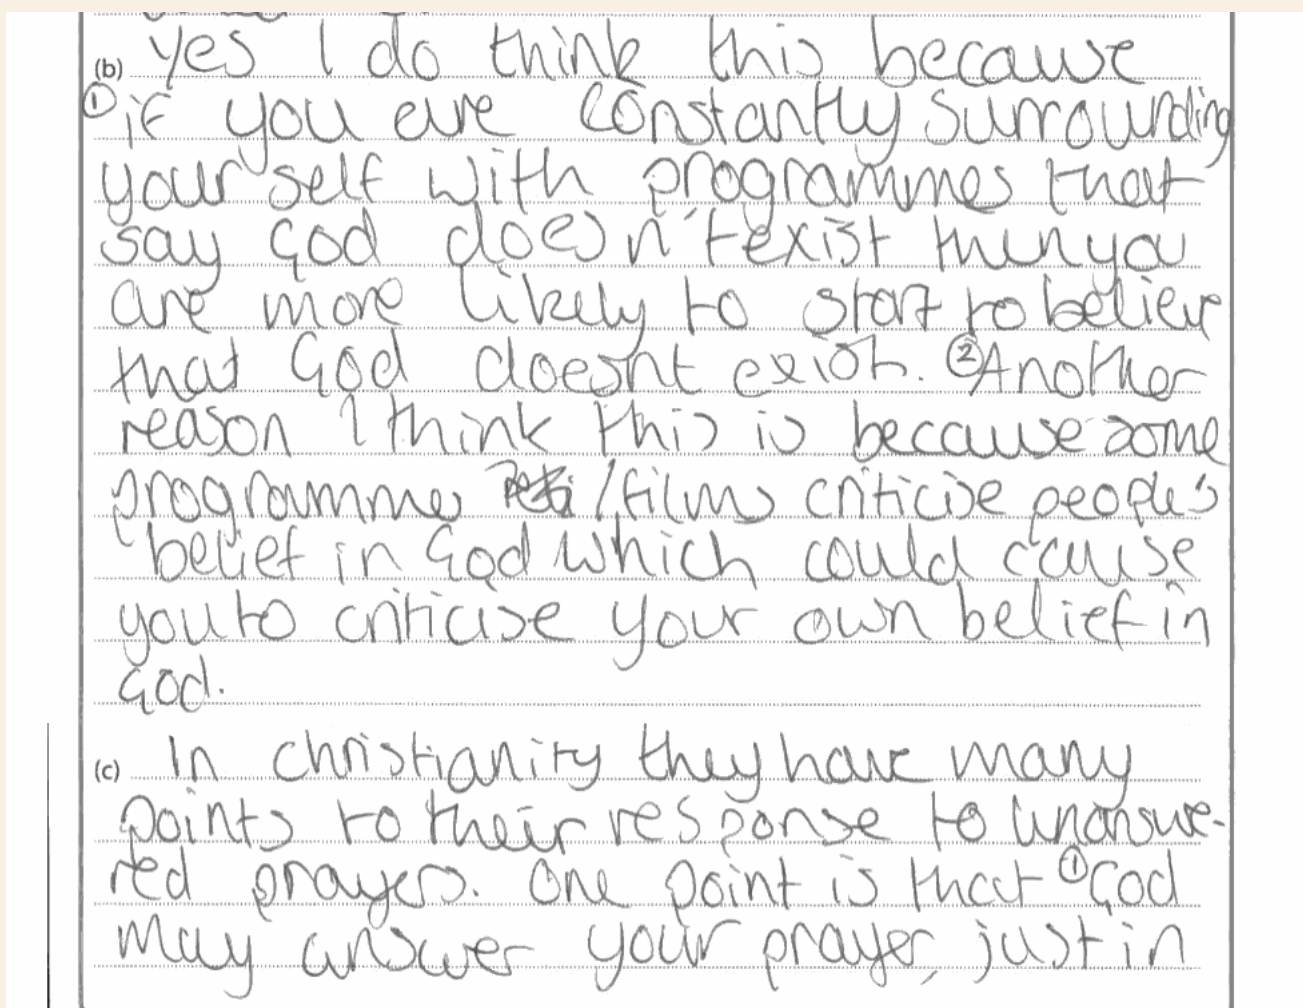 (b) yes I do think this because
① if you are constantly surrounding
your self with programmes that
say God doesn't exist then you
are more likely to start to believe
that God doesnt exist. ② Another
reason I think this is because some
programmes /films criticise people's
belief in God which could cause
you to criticise your own belief in
God.
(c) In christianity they have many
points to their response to unanswe-
red prayers. One point is that ① God
may answer your prayer, just in